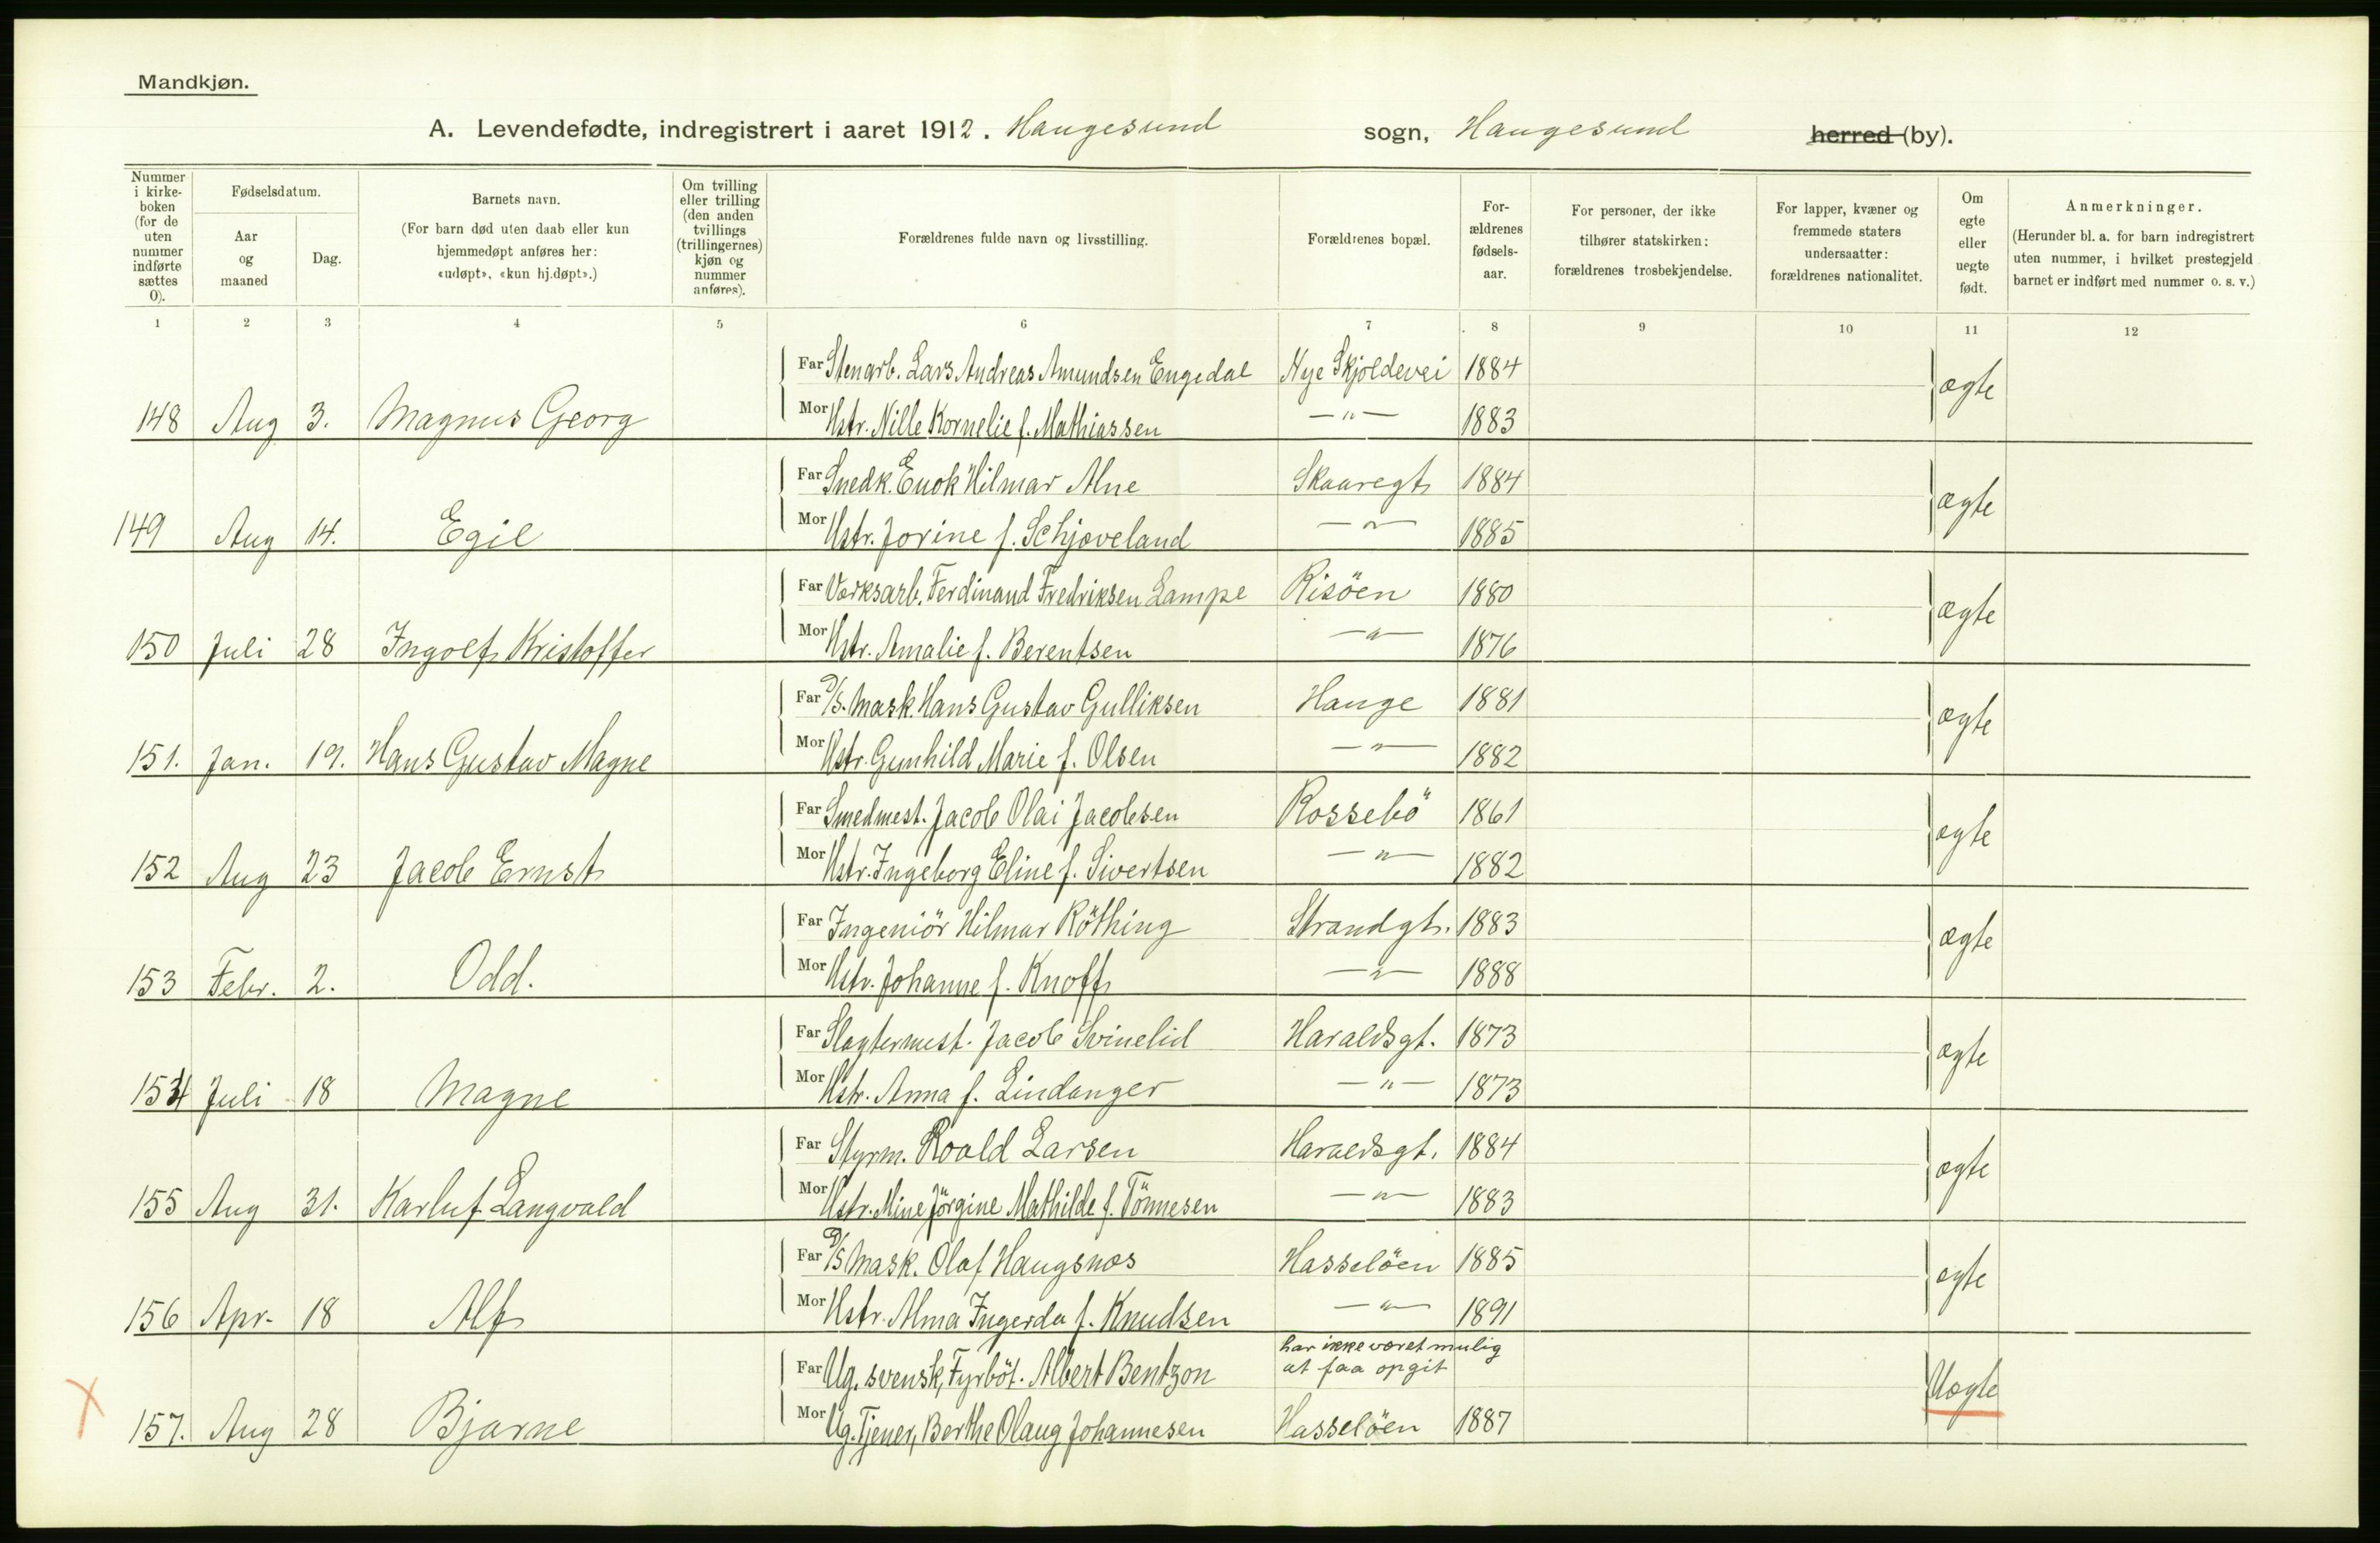 Mandkjøn.
A. Levendefødte, indregistrert i aaret 1912. Haugesund sogn, Haugesund herred (by).
Nummer i kirkeboken (for de uten nummer indførte sættes 0).
Fødselsdatum.
Aar og maaned
Dag.
Barnets navn.
(For barn død uten daab eller kun hjemmedøpt anføres her: «udøpt», «kun hj.døpt».)
Om tvilling eller trilling (den anden tvillings (trillingernes) kjøn og nummer anføres).
Forældrenes fulde navn og livsstilling.
Forældrenes bopæl.
Forældrenes fødselsaar.
For personer, der ikke tilhører statskirken: forældrenes trosbekjendelse.
For lapper, kvæner og fremmede staters undersaatter: forældrenes nationalitet.
Om egte eller uegte født.
Anmerkninger.
(Herunder bl. a. for barn indregistrert uten nummer, i hvilket prestegjeld barnet er indført med nummer o. s. v.)
1 2 3 4 5 6 7 8 9 10 11 12
Far Stenarb. Lars Andreas Amundsen Engedal Nye Skjoldevei 1884 ægte
148 Aug 3. Magnus Georg Mor Hstr. Nille Kornelie f. Mathiassen —"— 1883
Far Snedk. Enok Hilmar Alne Skaaregt 1884 ægte
149 Aug 14. Egil Mor Hstr. Jorine f. Schjøveland —"— 1885
Far Værksarb. Ferdinand Fredriksen Lampe Risöen 1880 ægte
150 Juli 28 Ingolf Kristoffer Mor Hstr. Amalie f. Berentsen —"— 1876
Far D/S. Mask. Hans Gustav Gulliksen Hauge 1881 ægte
151. Jan. 19. Hans Gustav Magne Mor Hstr. Gunhild Marie f. Olsen —"— 1882
Far Smedmest. Jacob Olai Jacobsen Rossebö 1861 ægte
152 Aug 23 Jacob Ernst Mor Hstr. Ingeborg Eline f. Sivertsen —"— 1882
Far Ingeniör Hilmar Röthing Strandgt. 1883 ægte
153 Febr. 2. Odd. Mor Hstr. Johanne f. Knoff —"— 1888
Far Slagtermest. Jacob Svinelid Haraldsgt. 1873 ægte
154 Juli 18 Magne Mor Hstr. Anna f. Lindanger —"— 1873
Far Styrm. Roald Larsen Haraldsgt. 1884 ægte
155 Aug 31. Karluf Langvald Mor Hstr. Mine Jörgine Mathilde f. Tönnesen —"— 1883
Far D/S Mask. Olaf Haugsnæs Hasselöen 1885 ægte
156 Apr. 18 Alf Mor Hstr. Alma Ingerda f. Knudsen —"— 1891
har ikke været mulig
Far Ug. svensk, Fyrböt. Albert Bentzon at faa opgit Uægte
X 157. Aug 28 Bjarne Mor Ug. Tjener, Berthe Olaug Johannesen Hasselöen 1887